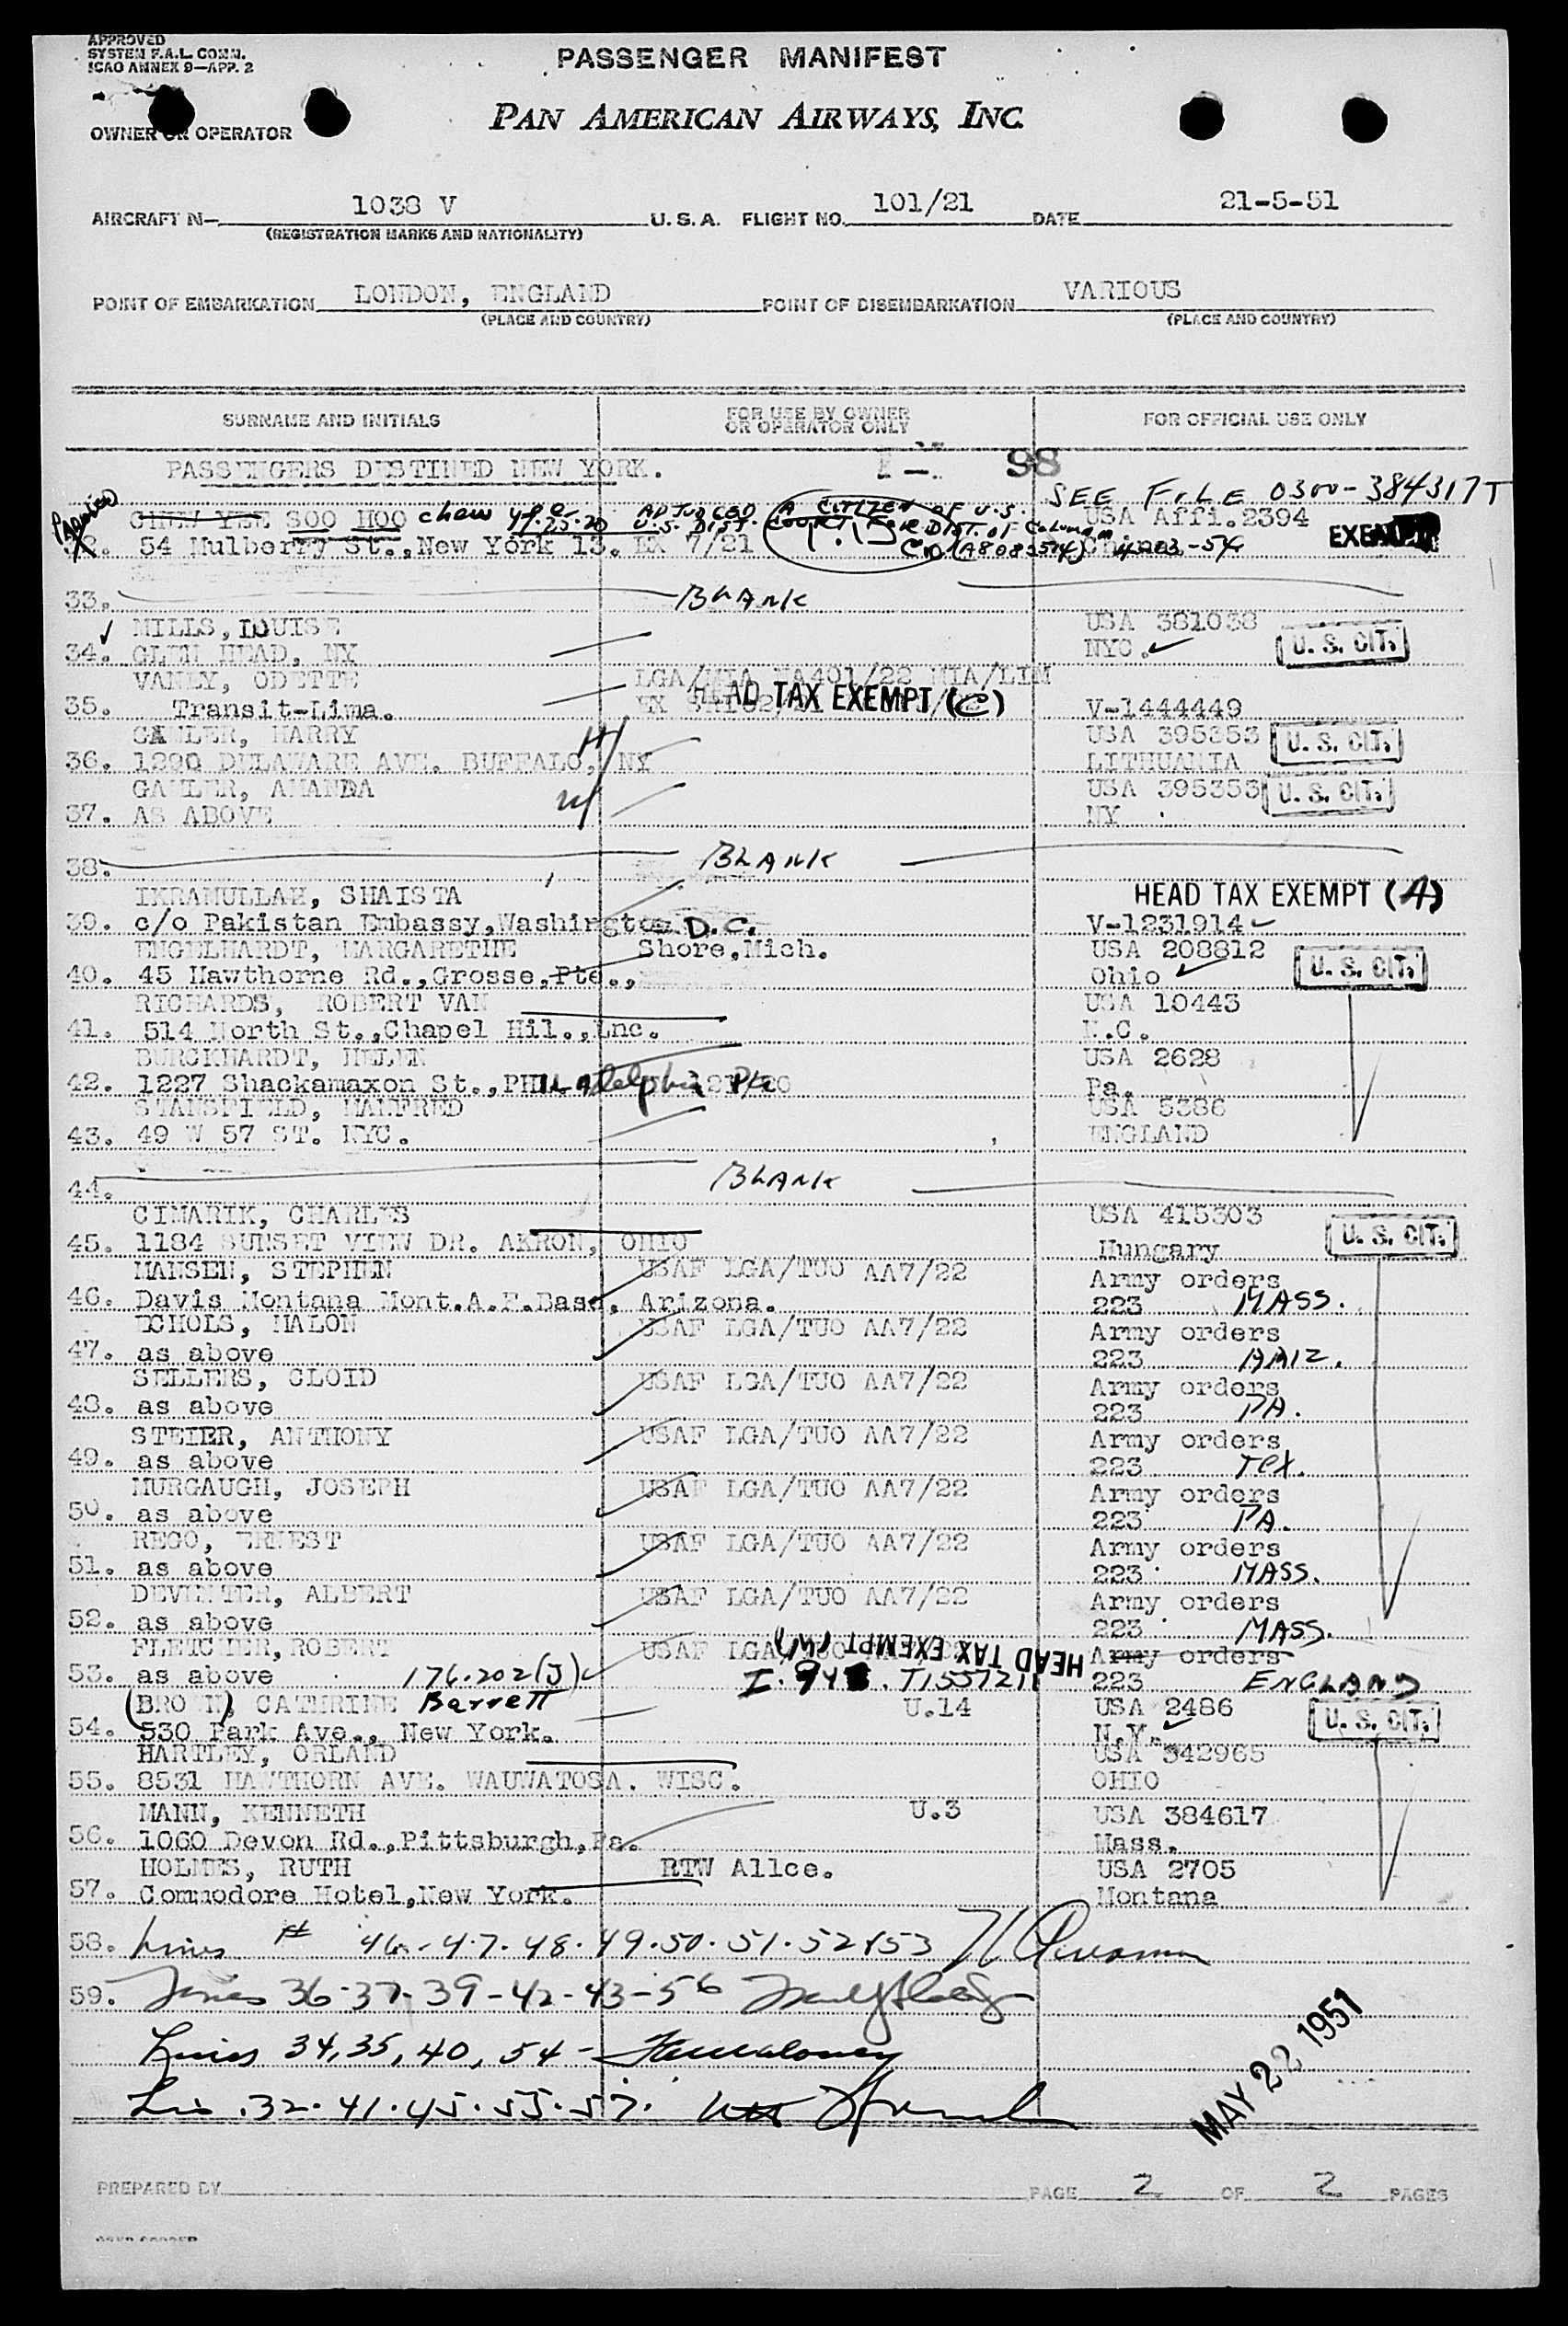 APPROVED
SYSTEM F.A.L. COMM.
ICAO ANNEX 9—APP. 2
PASSENGER MANIFEST
PAN AMERICAN AIRWAYS, INC.
OWNER OR OPERATOR
AIRCRAFT N— 1038 V U. S. A. FLIGHT NO. 101/21 DATE 21-5-51
(REGISTRATION MARKS AND NATIONALITY)
POINT OF EMBARKATION LONDON, ENGLAND POINT OF DISEMBARKATION VARIOUS
(PLACE AND COUNTRY) (PLACE AND COUNTRY)
SURNAME AND INITIALS FOR USE BY OWNER OR OPERATOR ONLY FOR OFFICIAL USE ONLY
PASSENGERS DESTINED NEW YORK. 98
SEE FILE 0300-384317T
Paroled CHEW YEE SOO HOO chew ADJUDGED A CITIZEN OF U.S. USA Affi.2394
U.S. DIST. COURT FOR DIST. of Column
32. 54 Mulberry St.,New York 13. EX 7/21 China EXEMPT
33. BLANK
MILLS, LOUISE USA 381038
34. GLEN HEAD, NY NYC. U. S. CIT.
VANEY, ODETTE LGA/MIA EA401/22 MIA/LIM
HEAD TAX EXEMPT (C)
35. Transit-Lima. V-1444449
GAULER, HARRY USA 395353 U. S. CIT.
36. 1290 DELAWARE AVE. BUFFALO, NY LITHUANIA
GAULER, AMANDA USA 395353 U. S. CIT.
37. AS ABOVE NY
38. BLANK
IKRAMULLAH, SHAISTA HEAD TAX EXEMPT (A)
39. c/o Pakistan Embassy,Washington D.C. V-1231914
ENGELHARDT, MARGARETHE Shore,Mich. USA 208812
40. 45 Hawthorne Rd.,Grosse,Pte., Ohio U. S. CIT.
RICHARDS, ROBERT VAN USA 10443
41. 514 North St.,Chapel Hil.,Lnc. N.C.
BURCKHARDT, HELEN USA 2628
42. 1227 Shackamaxon St.,PHILAdelphia Pa Pa.
STANSFIELD, MANFRED USA 5386
43. 49 W 57 ST. NYC. ENGLAND
44. BLANK
CIMARIK, CHARLES USA 415303
45. 1184 SUNSET VIEW DR. AKRON, OHIO Hungary U. S. CIT.
HANSEN, STEPHEN USAF LGA/TUO AA7/22 Army orders
46. Davis Montana Mont.A.F.Base, Arizona. 223 MASS.
ECHOLS, MALON USAF LGA/TUO AA7/22 Army orders
47. as above 223 ARIZ.
SELLERS, CLOID USAF LGA/TUO AA7/22 Army orders
48. as above 223 PA.
STEIER, ANTHONY USAF LGA/TUO AA7/22 Army orders
49. as above 223 Tex.
MURGAUGH, JOSEPH USAF LGA/TUO AA7/22 Army orders
50. as above 223 PA.
REGO, ERNEST USAF LGA/TUO AA7/22 Army orders
51. as above 223 MASS.
DEVENTER, ALBERT USAF LGA/TUO AA7/22 Army orders
52. as above 223 MASS.
FLETCHER, ROBERT USAF LGA HEAD TAX EXEMPT Army orders
53. as above 176.202(J) 223 ENGLAND
(BROWN), CATHRINE Barrett U.14 USA 2486
54. 530 Park Ave., New York. N.Y. U. S. CIT.
HARTLEY, ORLAND USA 342965
55. 8531 HAWTHORN AVE. WAUWATOSA. WISC. OHIO
MANN, KENNETH U.3 USA 384617
56. 1060 Devon Rd.,Pittsburgh,Pa. Mass.
HOLMES, RUTH RTW Allce. USA 2705
57. Commodore Hotel,New York. Montana
58. Lines # 46-47.48.49.50.51.52 & 53
59. Lines 36-37-39-42-43-56
Lines 34, 35, 40, 54 -
Lin .32.41.45.55.57.
MAY 22 1951
PREPARED BY PAGE 2 OF 2 PAGES